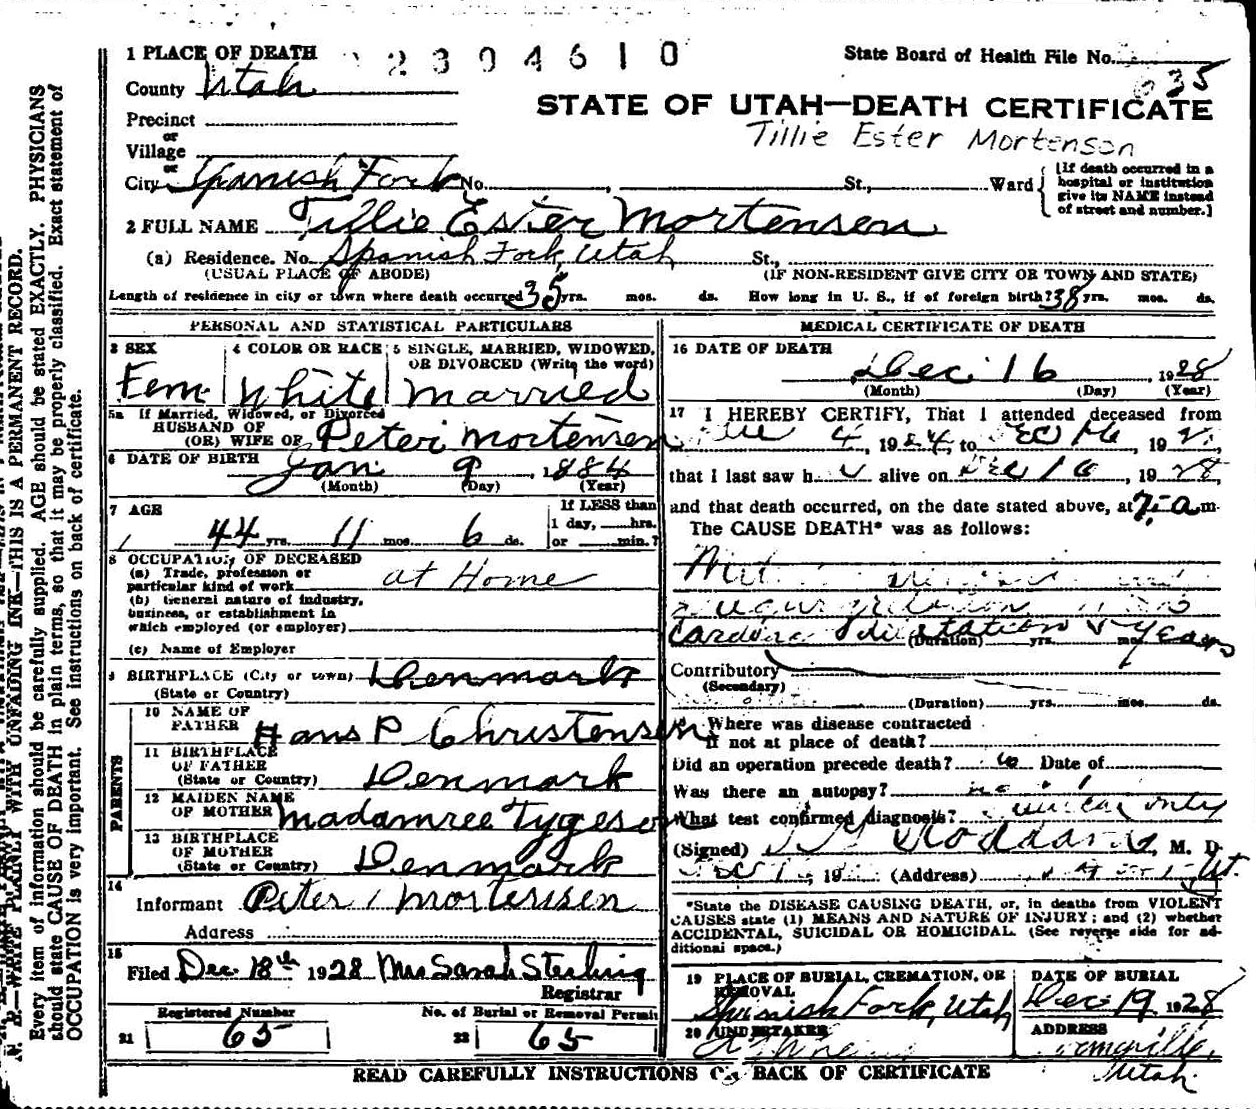 1 PLACE OF DEATH
2304610
State Board of Health File No.
635
County Utah
STATE OF UTAH—DEATH CERTIFICATE
Precinct
Tillie Ester Mortenson
or
Village
or
City Spanish Fork No. , St., Ward
[If death occurred in a
hospital or institution
give its NAME instead
of street and number.]
2 FULL NAME Tillie Ester Mortensen
(a) Residence. No. Spanish Fork, Utah St.,
(USUAL PLACE OF ABODE) (IF NON-RESIDENT GIVE CITY OR TOWN AND STATE)
Length of residence in city or town where death occurred 35 yrs. mos. ds. How long in U. S., if of foreign birth? 38 yrs. mos. ds.
PERSONAL AND STATISTICAL PARTICULARS
3 SEX
Fem
4 COLOR OR RACE
White
5 SINGLE, MARRIED, WIDOWED,
OR DIVORCED (Write the word)
Married
5a If Married, Widowed, or Divorced
HUSBAND OF
(OR) WIFE OF Peter Mortensen
6 DATE OF BIRTH
Jan 9, 1884
(Month) (Day) (Year)
7 AGE
44 yrs. 11 mos. 6 ds.
If LESS than
1 day, hrs.
or min.?
8 OCCUPATION OF DECEASED
(a) Trade, profession or
particular kind of work at Home
(b) General nature of industry,
business, or establishment in
which employed (or employer)
(c) Name of Employer
9 BIRTHPLACE (City or town) Denmark
(State or Country)
PARENTS
10 NAME OF
FATHER Hans P Christensen
11 BIRTHPLACE
OF FATHER
(State or Country) Denmark
12 MAIDEN NAME
OF MOTHER Madamree Tygeson
13 BIRTHPLACE
OF MOTHER
(State or Country) Denmark
14
Informant Peter Mortensen
Address
15
Filed Dec. 18th 1928 Mrs Sarah Sterling
Registrar
Registered Number
21 65
No. of Burial or Removal Permit
22 65
MEDICAL CERTIFICATE OF DEATH
16 DATE OF DEATH
Dec. 16, 1928
(Month) (Day) (Year)
17 I HEREBY CERTIFY, That I attended deceased from
4, 1924, to Dec 16, 192
that I last saw h alive on Dec 16, 1928,
and that death occurred, on the date stated above, at 7 a m.
The CAUSE DEATH* was as follows:
Cardiac Dilatation years
(Duration) yrs. mos.
Contributory
(Secondary)
(Duration) yrs. mos. ds.
18 Where was disease contracted
if not at place of death?
Did an operation precede death? Date of
Was there an autopsy? no
What test confirmed diagnosis? only
(Signed) Stoddard, M. D.
, 19 (Address) Ut.
*State the DISEASE CAUSING DEATH, or, in deaths from VIOLENT
CAUSES state (1) MEANS AND NATURE OF INJURY; and (2) whether
ACCIDENTAL, SUICIDAL OR HOMICIDAL. (See reverse side for ad-
ditional space.)
19 PLACE OF BURIAL, CREMATION, OR
REMOVAL
Spanish Fork, Utah
DATE OF BURIAL
Dec 19 1928
20 UNDERTAKER
ADDRESS
Utah
READ CAREFULLY INSTRUCTIONS ON BACK OF CERTIFICATE
N. B.—WRITE PLAINLY WITH UNFADING INK—THIS IS A PERMANENT RECORD.
Every item of information should be carefully supplied. AGE should be stated EXACTLY. PHYSICIANS
should state CAUSE OF DEATH in plain terms, so that it may be properly classified. Exact statement of
OCCUPATION is very important. See instructions on back of certificate.